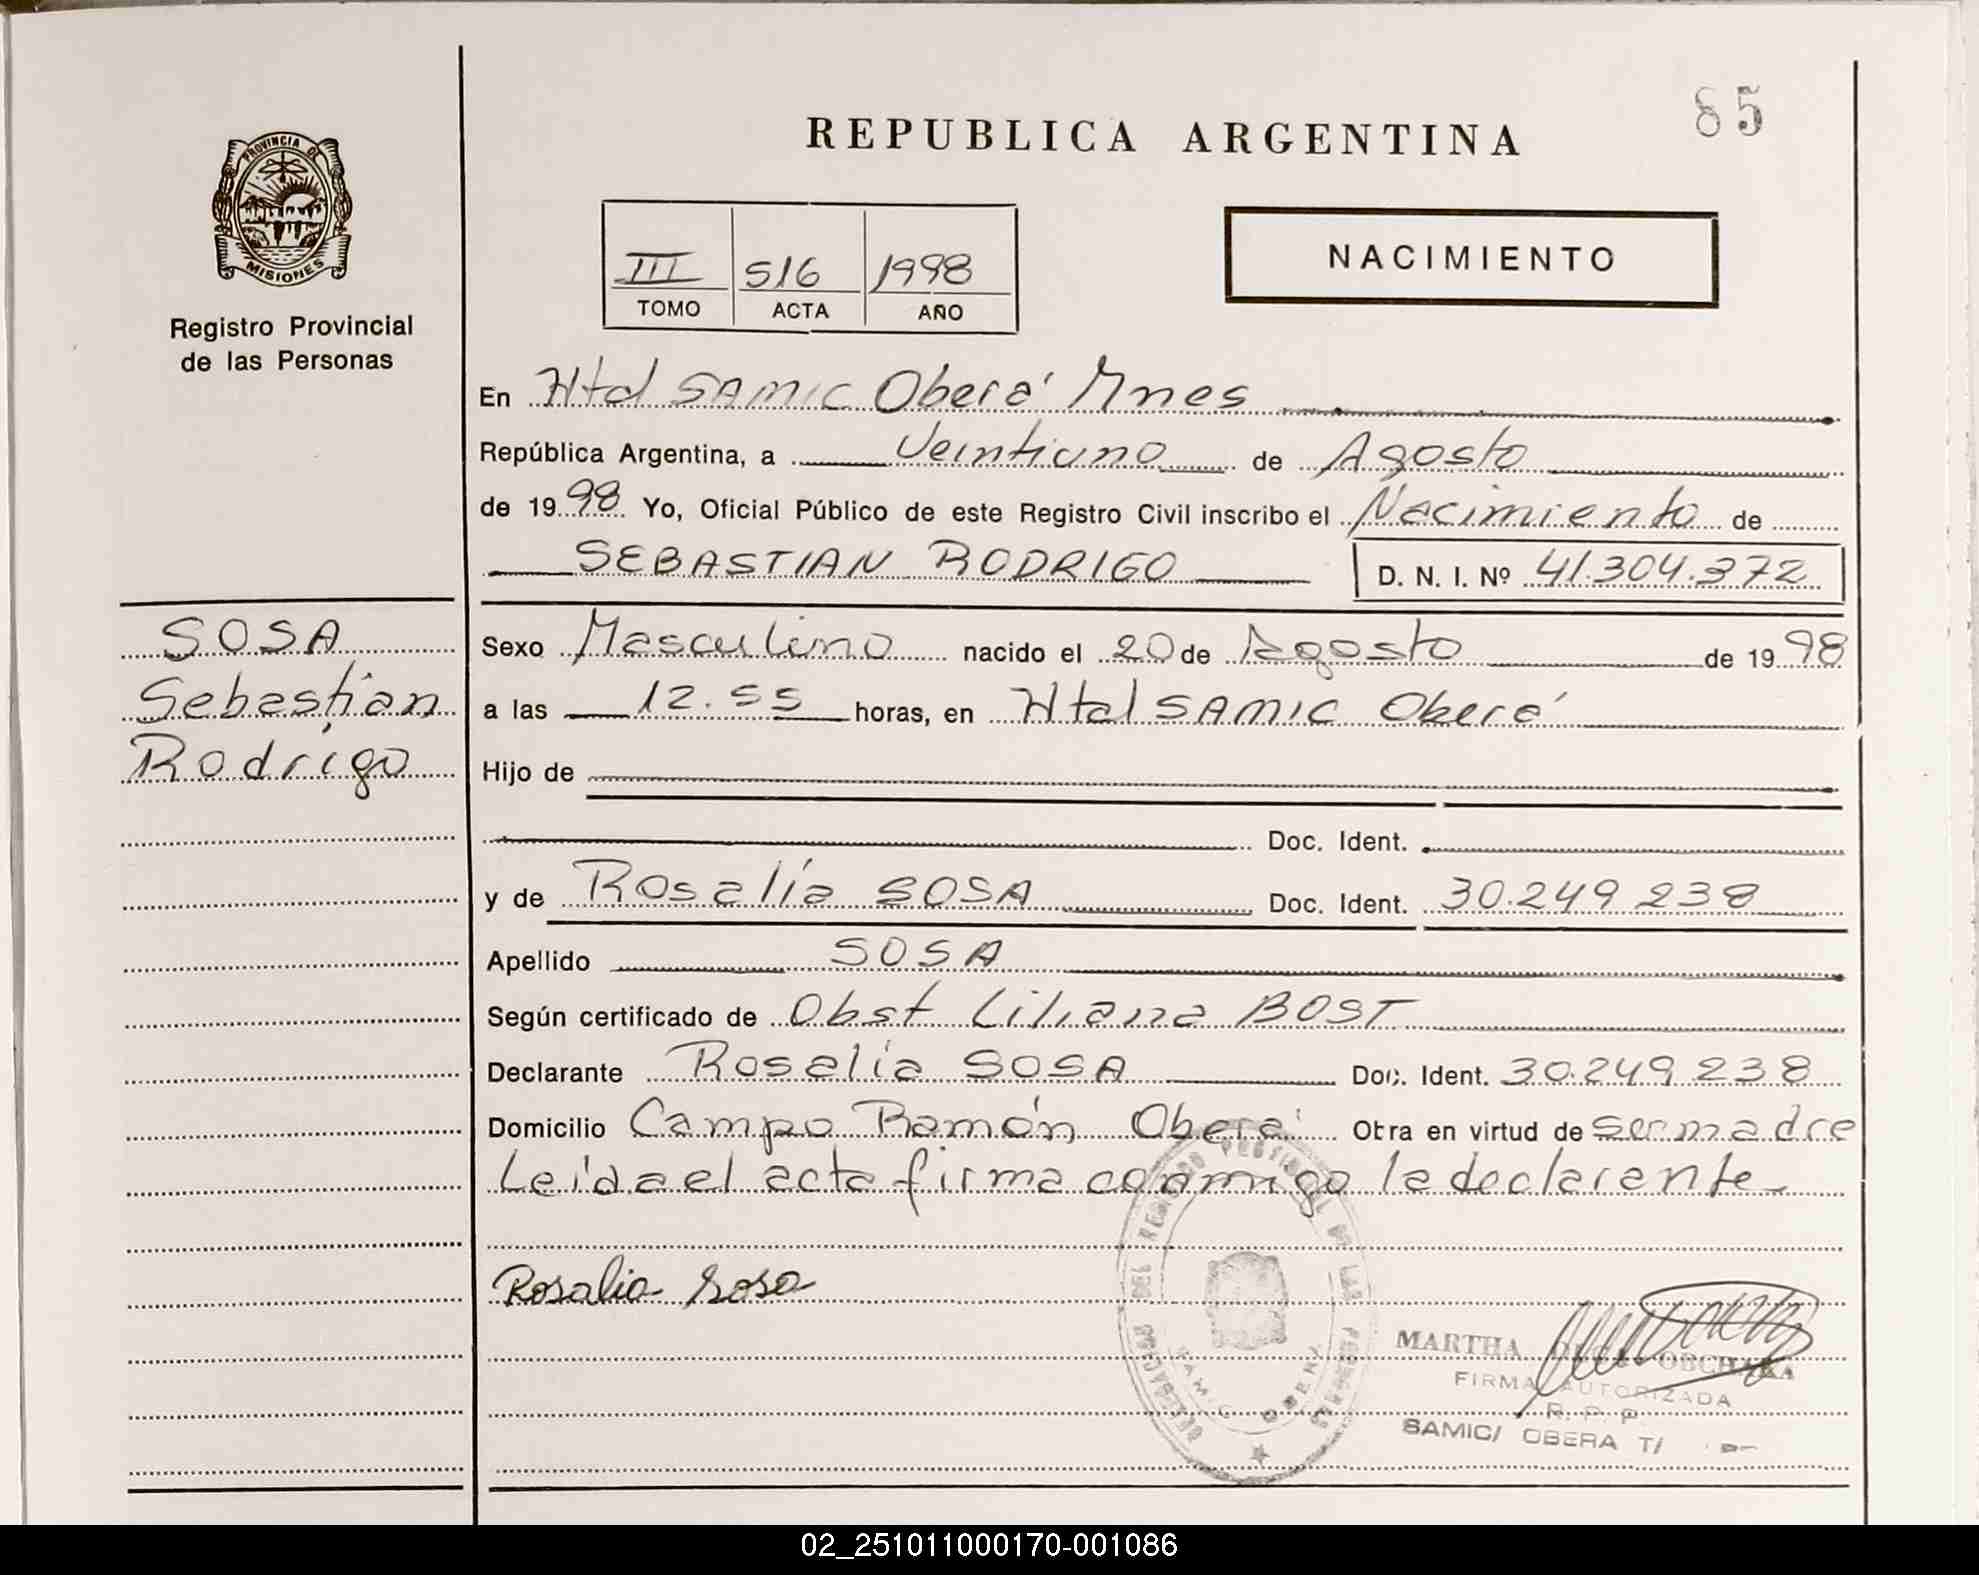 85
REPUBLICA ARGENTINA
PROVINCIA DE
MISIONES
Registro Provincial
de las Personas
III 516 1998
TOMO ACTA AÑO
NACIMIENTO
En Htal SAMIC Oberá Mnes
República Argentina, a Veintiuno de Agosto
de 1998 Yo, Oficial Público de este Registro Civil inscribo el Nacimiento de
SEBASTIAN RODRIGO D. N. I. Nº 41.304.372
SOSA
Sebastian
Rodrigo
Sexo Masculino nacido el 20 de Agosto de 1998
a las 12.55 horas, en Htal SAMIC Oberá
Hijo de
Doc. Ident.
y de Rosalía SOSA Doc. Ident. 30.249.238
Apellido SOSA
Según certificado de Obst Liliana BOST
Declarante Rosalía SOSA Doc. Ident. 30.249.238
Domicilio Campo Ramón Oberá Obra en virtud de ser madre
Leída el acta firma conmigo la declarante
Rosalia Sosa
DELEGACION DEL REGISTRO PROVINCIAL DE LAS PERSONAS
SAMIC OBERA
MARTHA
FIRMA AUTORIZADA
R. P. P.
SAMIC/ OBERA T/
02_251011000170-001086